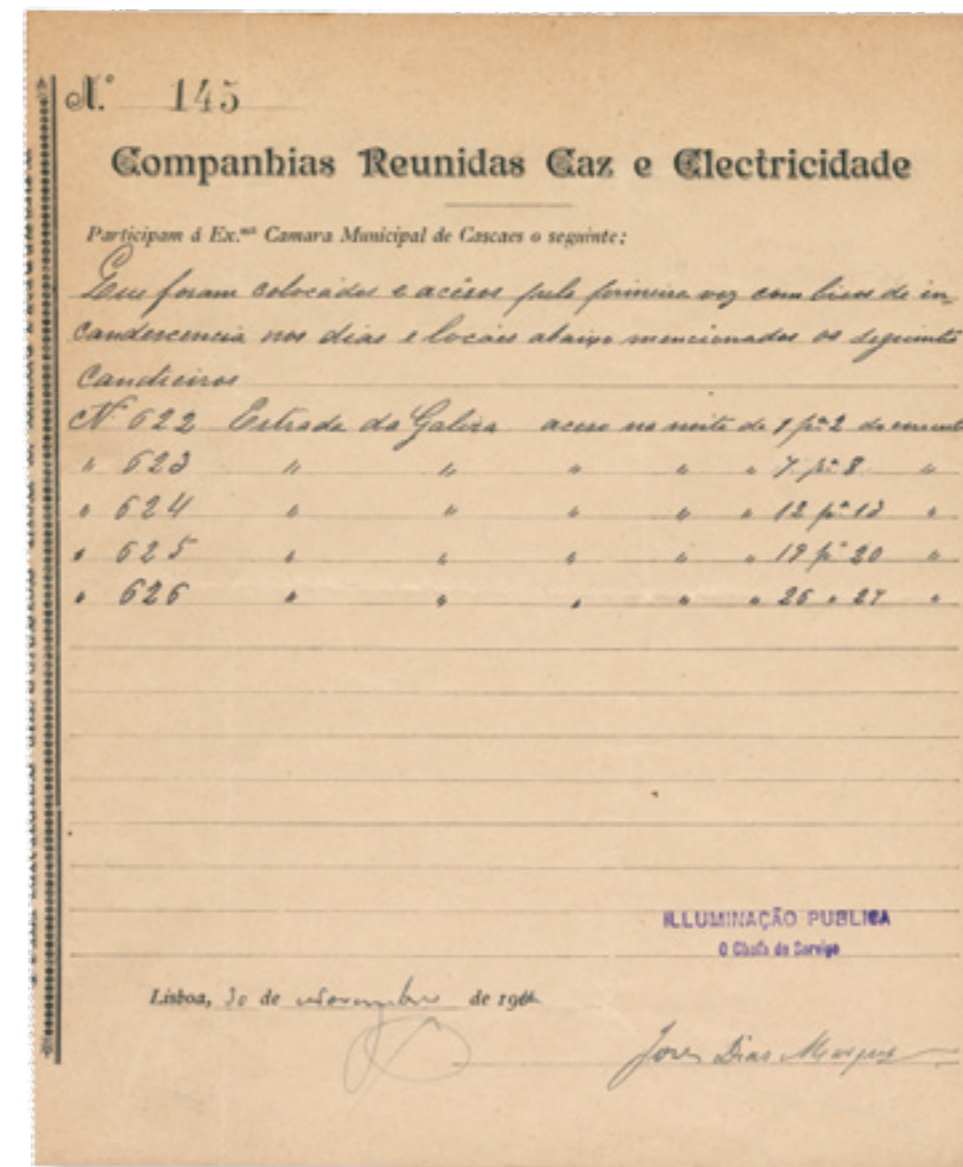 N.º 145
Companhias Reunidas Gaz e Electricidade
Participam á Ex.ma Camara Municipal de Cascaes o seguinte:
Que foram colocados e acêsos pela primeira vez com bicos de in-
candescencia nos dias e locaes abaixo mencionados os seguintes
Candieiros
Nº 622 Estrada da Galiza aceso na noite de 1 pª 2 do corrente
" 623 " " " " " 7 pª 8 "
" 624 " " " " " 12 pª 13 "
" 625 " " " " " 19 pª 20 "
" 626 " " " " " 26 " 27 "
ILLUMINAÇÃO PUBLICA
O Chefe do Serviço
Lisboa, 30 de novembro de 19
Dias